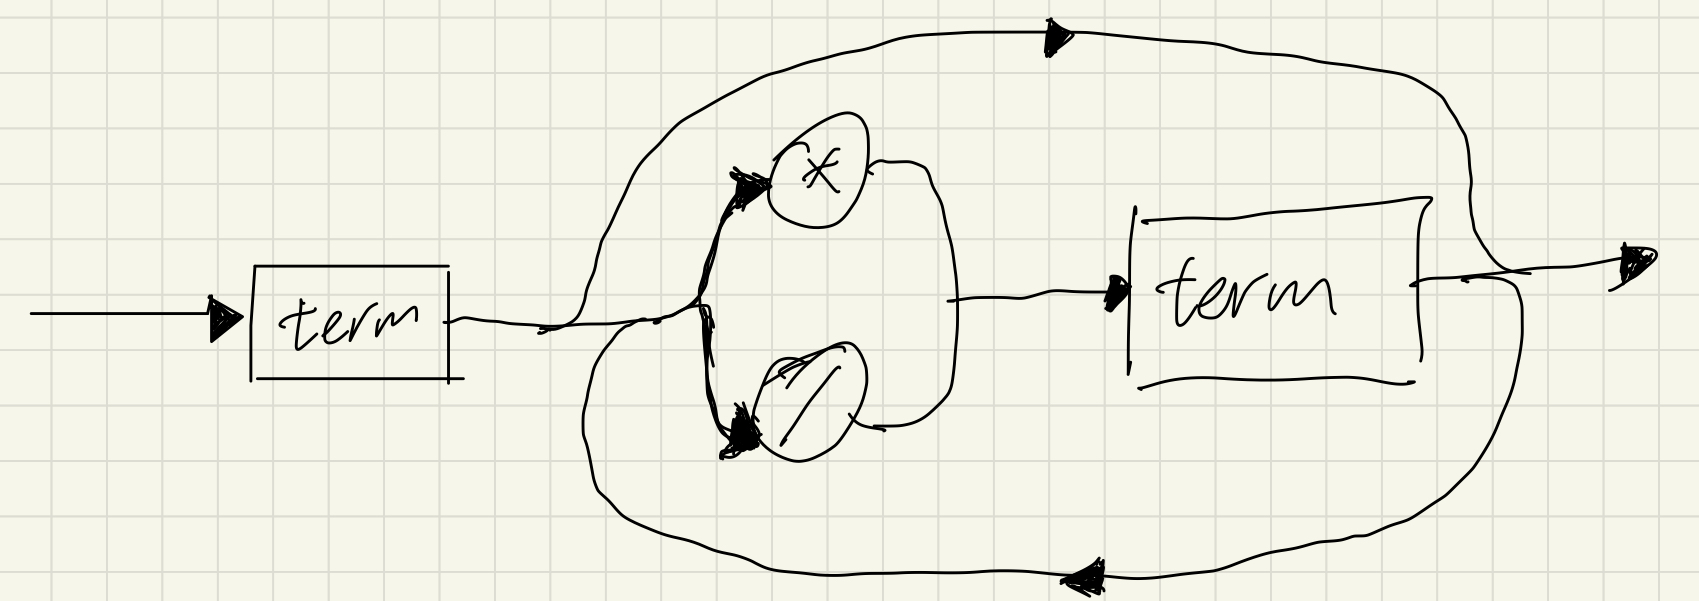 term
*
/
term